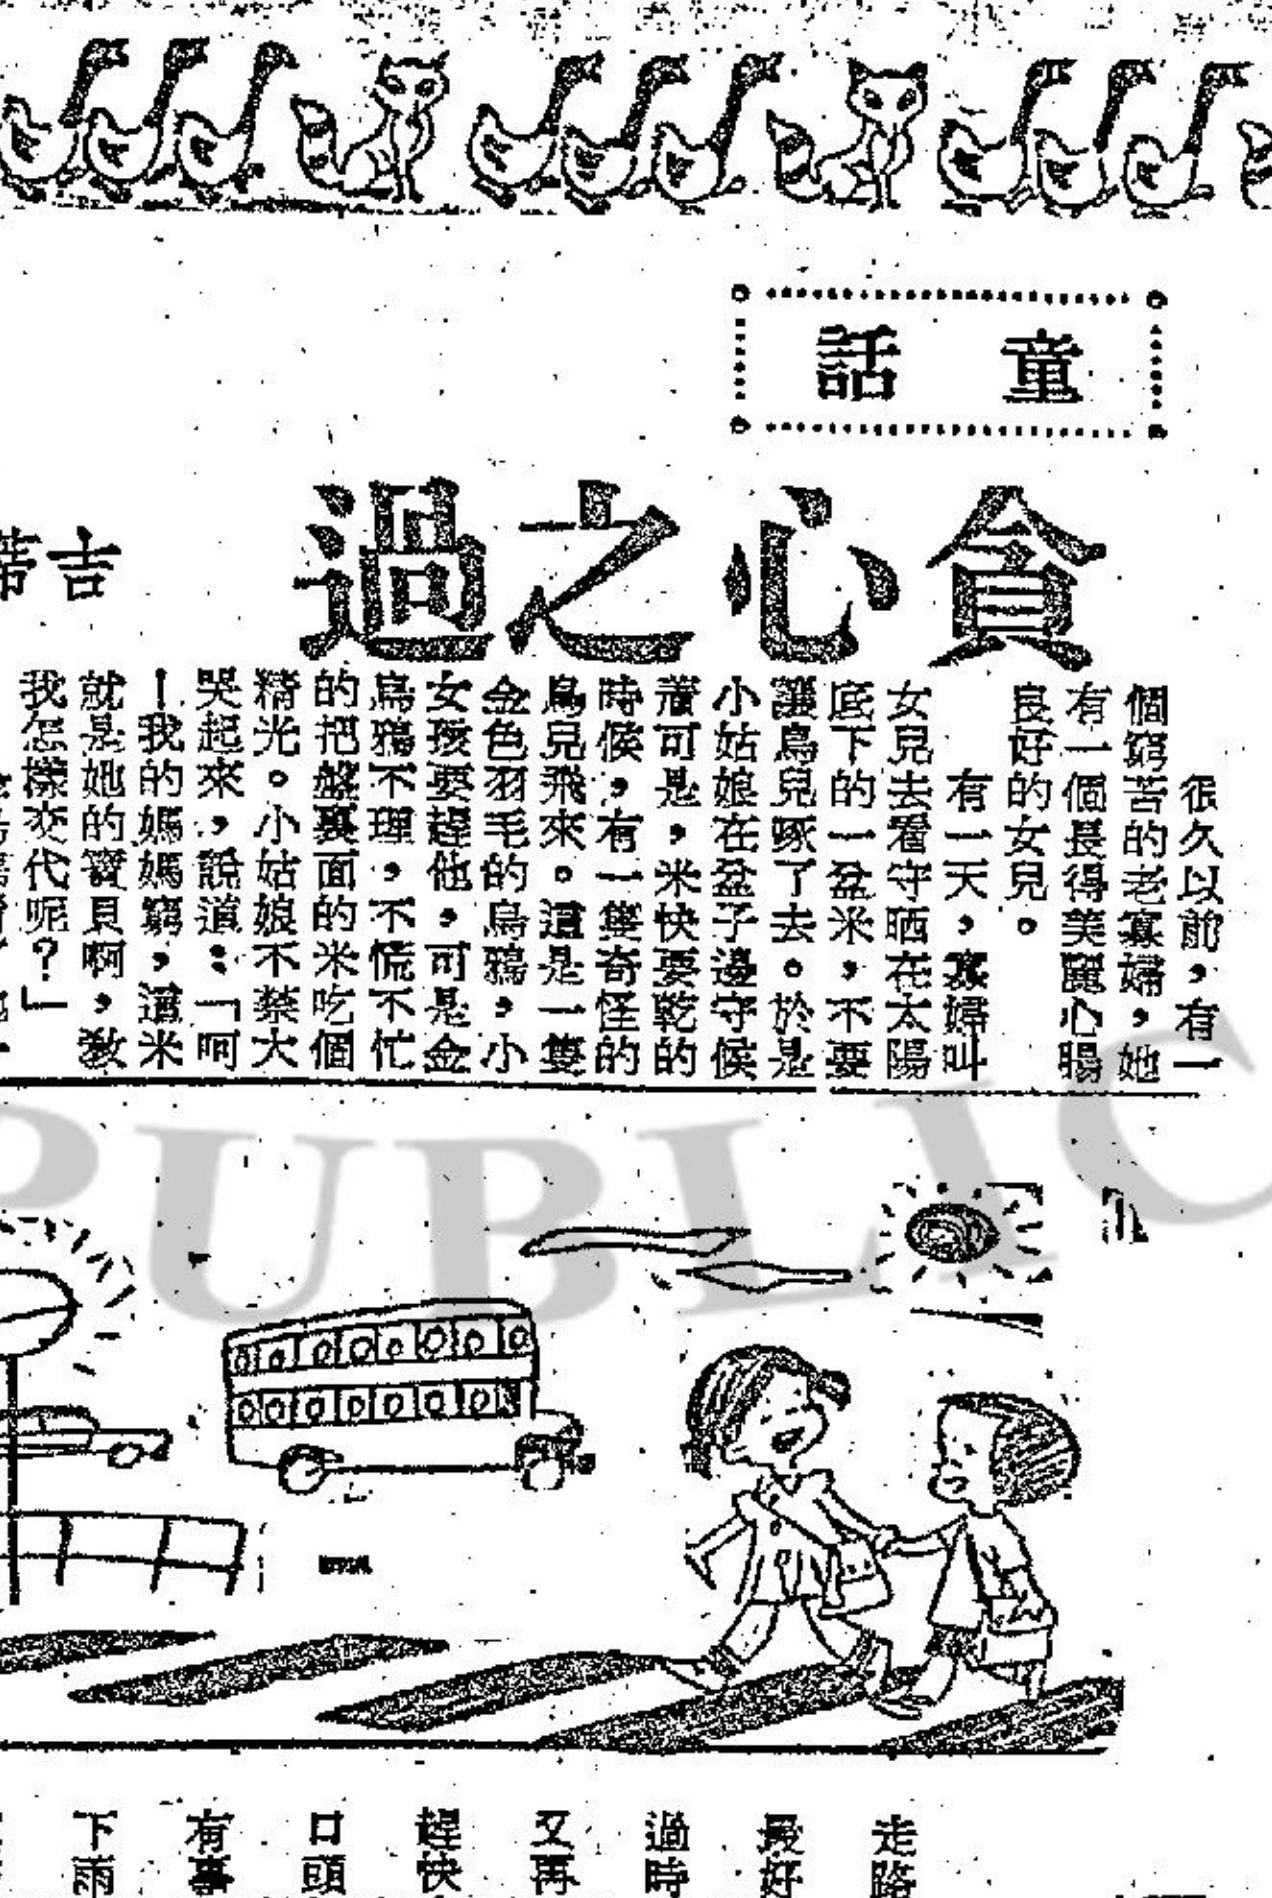 童話
貪心之過
吉蒂
很久以前，有一
個窮苦的老寡婦，她
有一個長得美麗心腸
良好的女兒。
有一天，寡婦叫
女兒去看守晒在太陽
底下的一盆米，不要
讓鳥兒啄了去。於是
小姑娘在盆子邊守候
着可是，米快要乾的
時候，有一隻奇怪的
鳥兒飛來。這是一隻
金色羽毛的烏鴉，小
女孩要趕他，可是金
烏鴉不理，不慌不忙
的把盤裏面的米吃個
精光。小姑娘不禁大
哭起來，說道：「呵
！我的媽媽窮，這米
就是她的寶貝啊，教
我怎樣交代呢？」
PUBLIC
走路
最好
過時
又再
趕快
口頭
有事
下雨